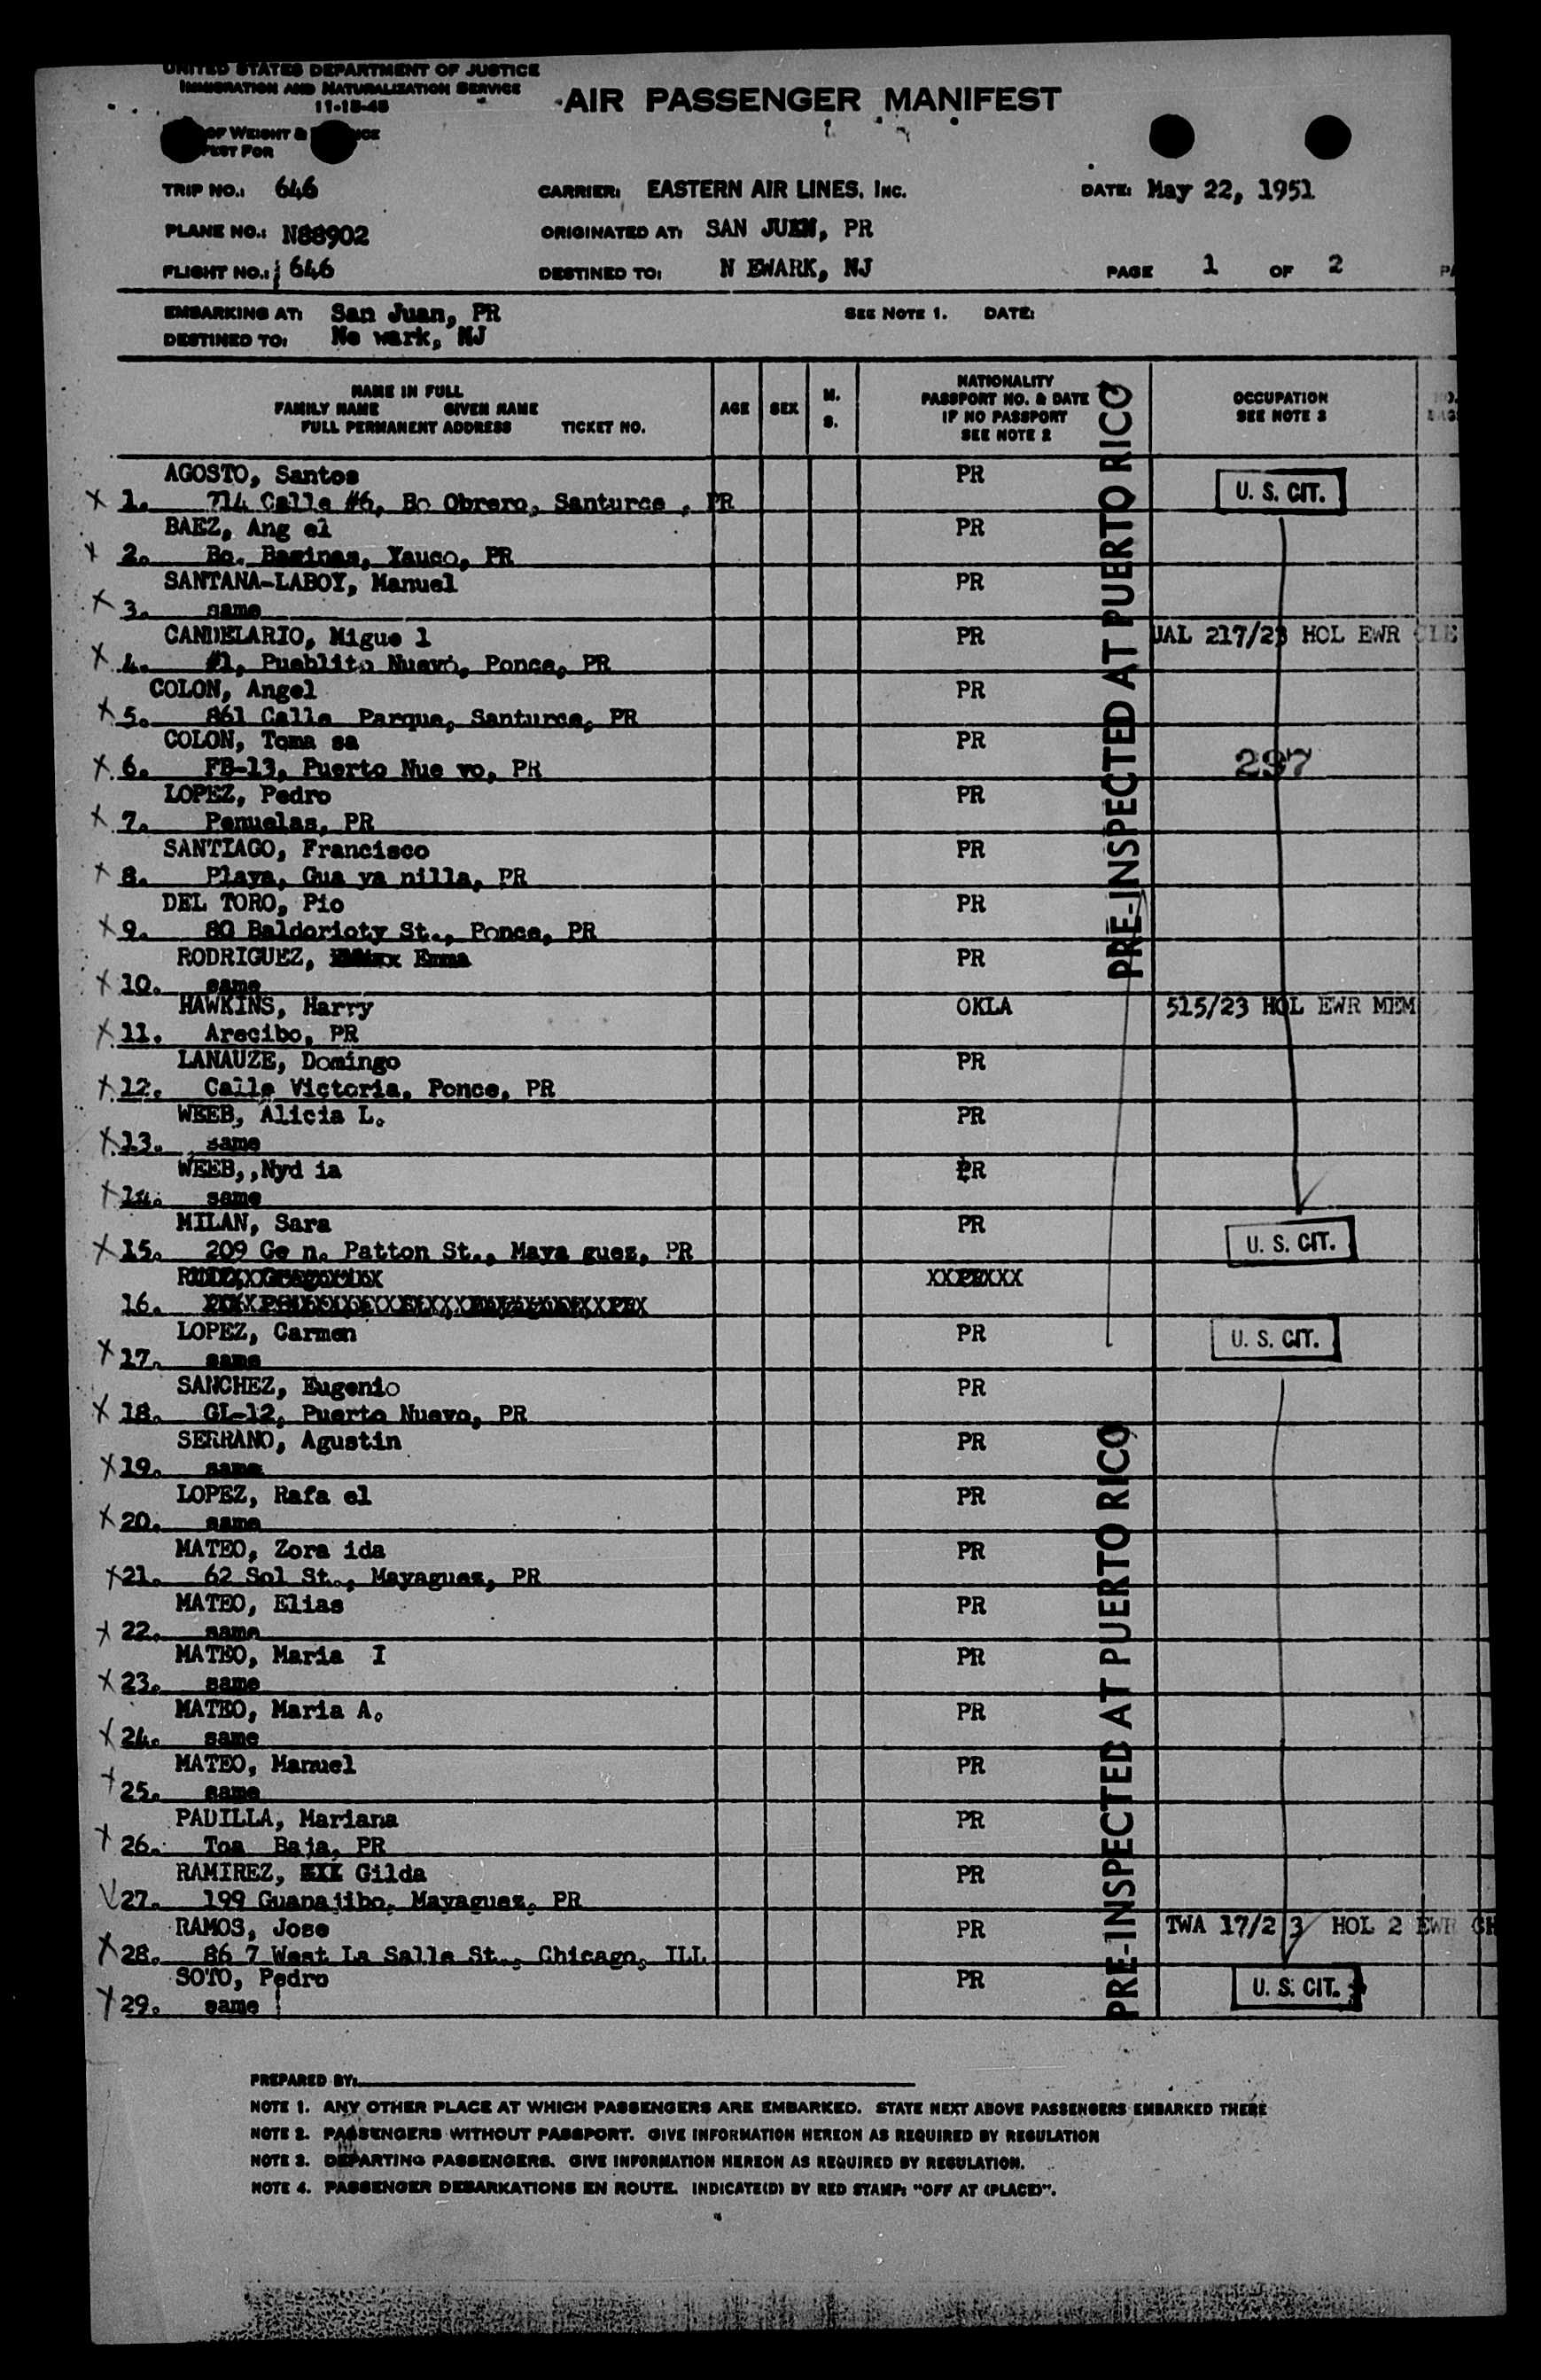 UNITED STATES DEPARTMENT OF JUSTICE
IMMIGRATION AND NATURALIZATION SERVICE
11-18-48
AIR PASSENGER MANIFEST
OF WEIGHT &
FEST FOR
TRIP NO.: 646 CARRIER: EASTERN AIR LINES, INC. DATE: May 22, 1951
PLANE NO.: N88902 ORIGINATED AT: SAN JUAN, PR
FLIGHT NO.: 646 DESTINED TO: N EWARK, NJ PAGE 1 OF 2
EMBARKING AT: San Juan, PR SEE NOTE 1. DATE:
DESTINED TO: Ne wark, NJ
NAME IN FULL
FAMILY NAME GIVEN NAME
FULL PERMANENT ADDRESS TICKET NO.
AGE SEX M. S.
NATIONALITY
PASSPORT NO. & DATE
IF NO PASSPORT
SEE NOTE 2
OCCUPATION
SEE NOTE 3
PRE-INSPECTED AT PUERTO RICO
AGOSTO, Santos PR U. S. CIT.
X 1. 714 Calle #6, Bo Obrero, Santurce , PR
BAEZ, Ang el PR
X 2. Bo. Barinas, Yauco, PR
SANTANA-LABOY, Manuel PR
X 3. same
CANDELARIO, Migue l PR UAL 217/23 HOL EWR CLE
X 4. #1, Pueblito Nuevo, Ponce, PR
COLON, Angel PR
X 5. 861 Calle Parque, Santurce, PR
COLON, Toma sa PR
X 6. FB-13, Puerto Nue vo, PR 297
LOPEZ, Pedro PR
X 7. Penuelas, PR
SANTIAGO, Francisco PR
X 8. Playa, Gua ya nilla, PR
DEL TORO, Pio PR
X 9. 80 Baldorioty St., Ponce, PR
RODRIGUEZ, Emma PR
X 10. same
HAWKINS, Harry OKLA 515/23 HOL EWR MEM
X 11. Arecibo, PR
LANAUZE, Domingo PR
X 12. Calle Victoria, Ponce, PR
WEEB, Alicia L. PR
X 13. same
WEEB,,Nyd ia PR
X 14. same
MILAN, Sara PR U. S. CIT.
X 15. 209 Ge n. Patton St., Maya guez, PR
16.
LOPEZ, Carmen PR U. S. CIT.
X 17. same
SANCHEZ, Eugenio PR
X 18. GL-12, Puerto Nuevo, PR
SERRANO, Agustin PR
X 19. same
LOPEZ, Rafa el PR
X 20. same
PRE-INSPECTED AT PUERTO RICO
MATEO, Zora ida PR
X 21. 62 Sol St., Mayaguez, PR
MATEO, Elias PR
X 22. same
MATEO, Maria I PR
X 23. same
MATEO, Maria A. PR
X 24. same
MATEO, Manuel PR
X 25. same
PADILLA, Mariana PR
X 26. Toa Baja, PR
RAMIREZ, Gilda PR
27. 199 Guanajibo, Mayaguez, PR
RAMOS, Jose PR TWA 17/2 3 HOL 2 EWR CH
X 28. 86 7 West La Salle St., Chicago, ILL
SOTO, Pedro PR U. S. CIT.
X 29. same
PREPARED BY:
NOTE 1. ANY OTHER PLACE AT WHICH PASSENGERS ARE EMBARKED. STATE NEXT ABOVE PASSENGERS EMBARKED THERE
NOTE 2. PASSENGERS WITHOUT PASSPORT. GIVE INFORMATION HEREON AS REQUIRED BY REGULATION
NOTE 3. DEPARTING PASSENGERS. GIVE INFORMATION HEREON AS REQUIRED BY REGULATION.
NOTE 4. PASSENGER DEBARKATIONS EN ROUTE. INDICATE(D) BY RED STAMP: "OFF AT (PLACE)".